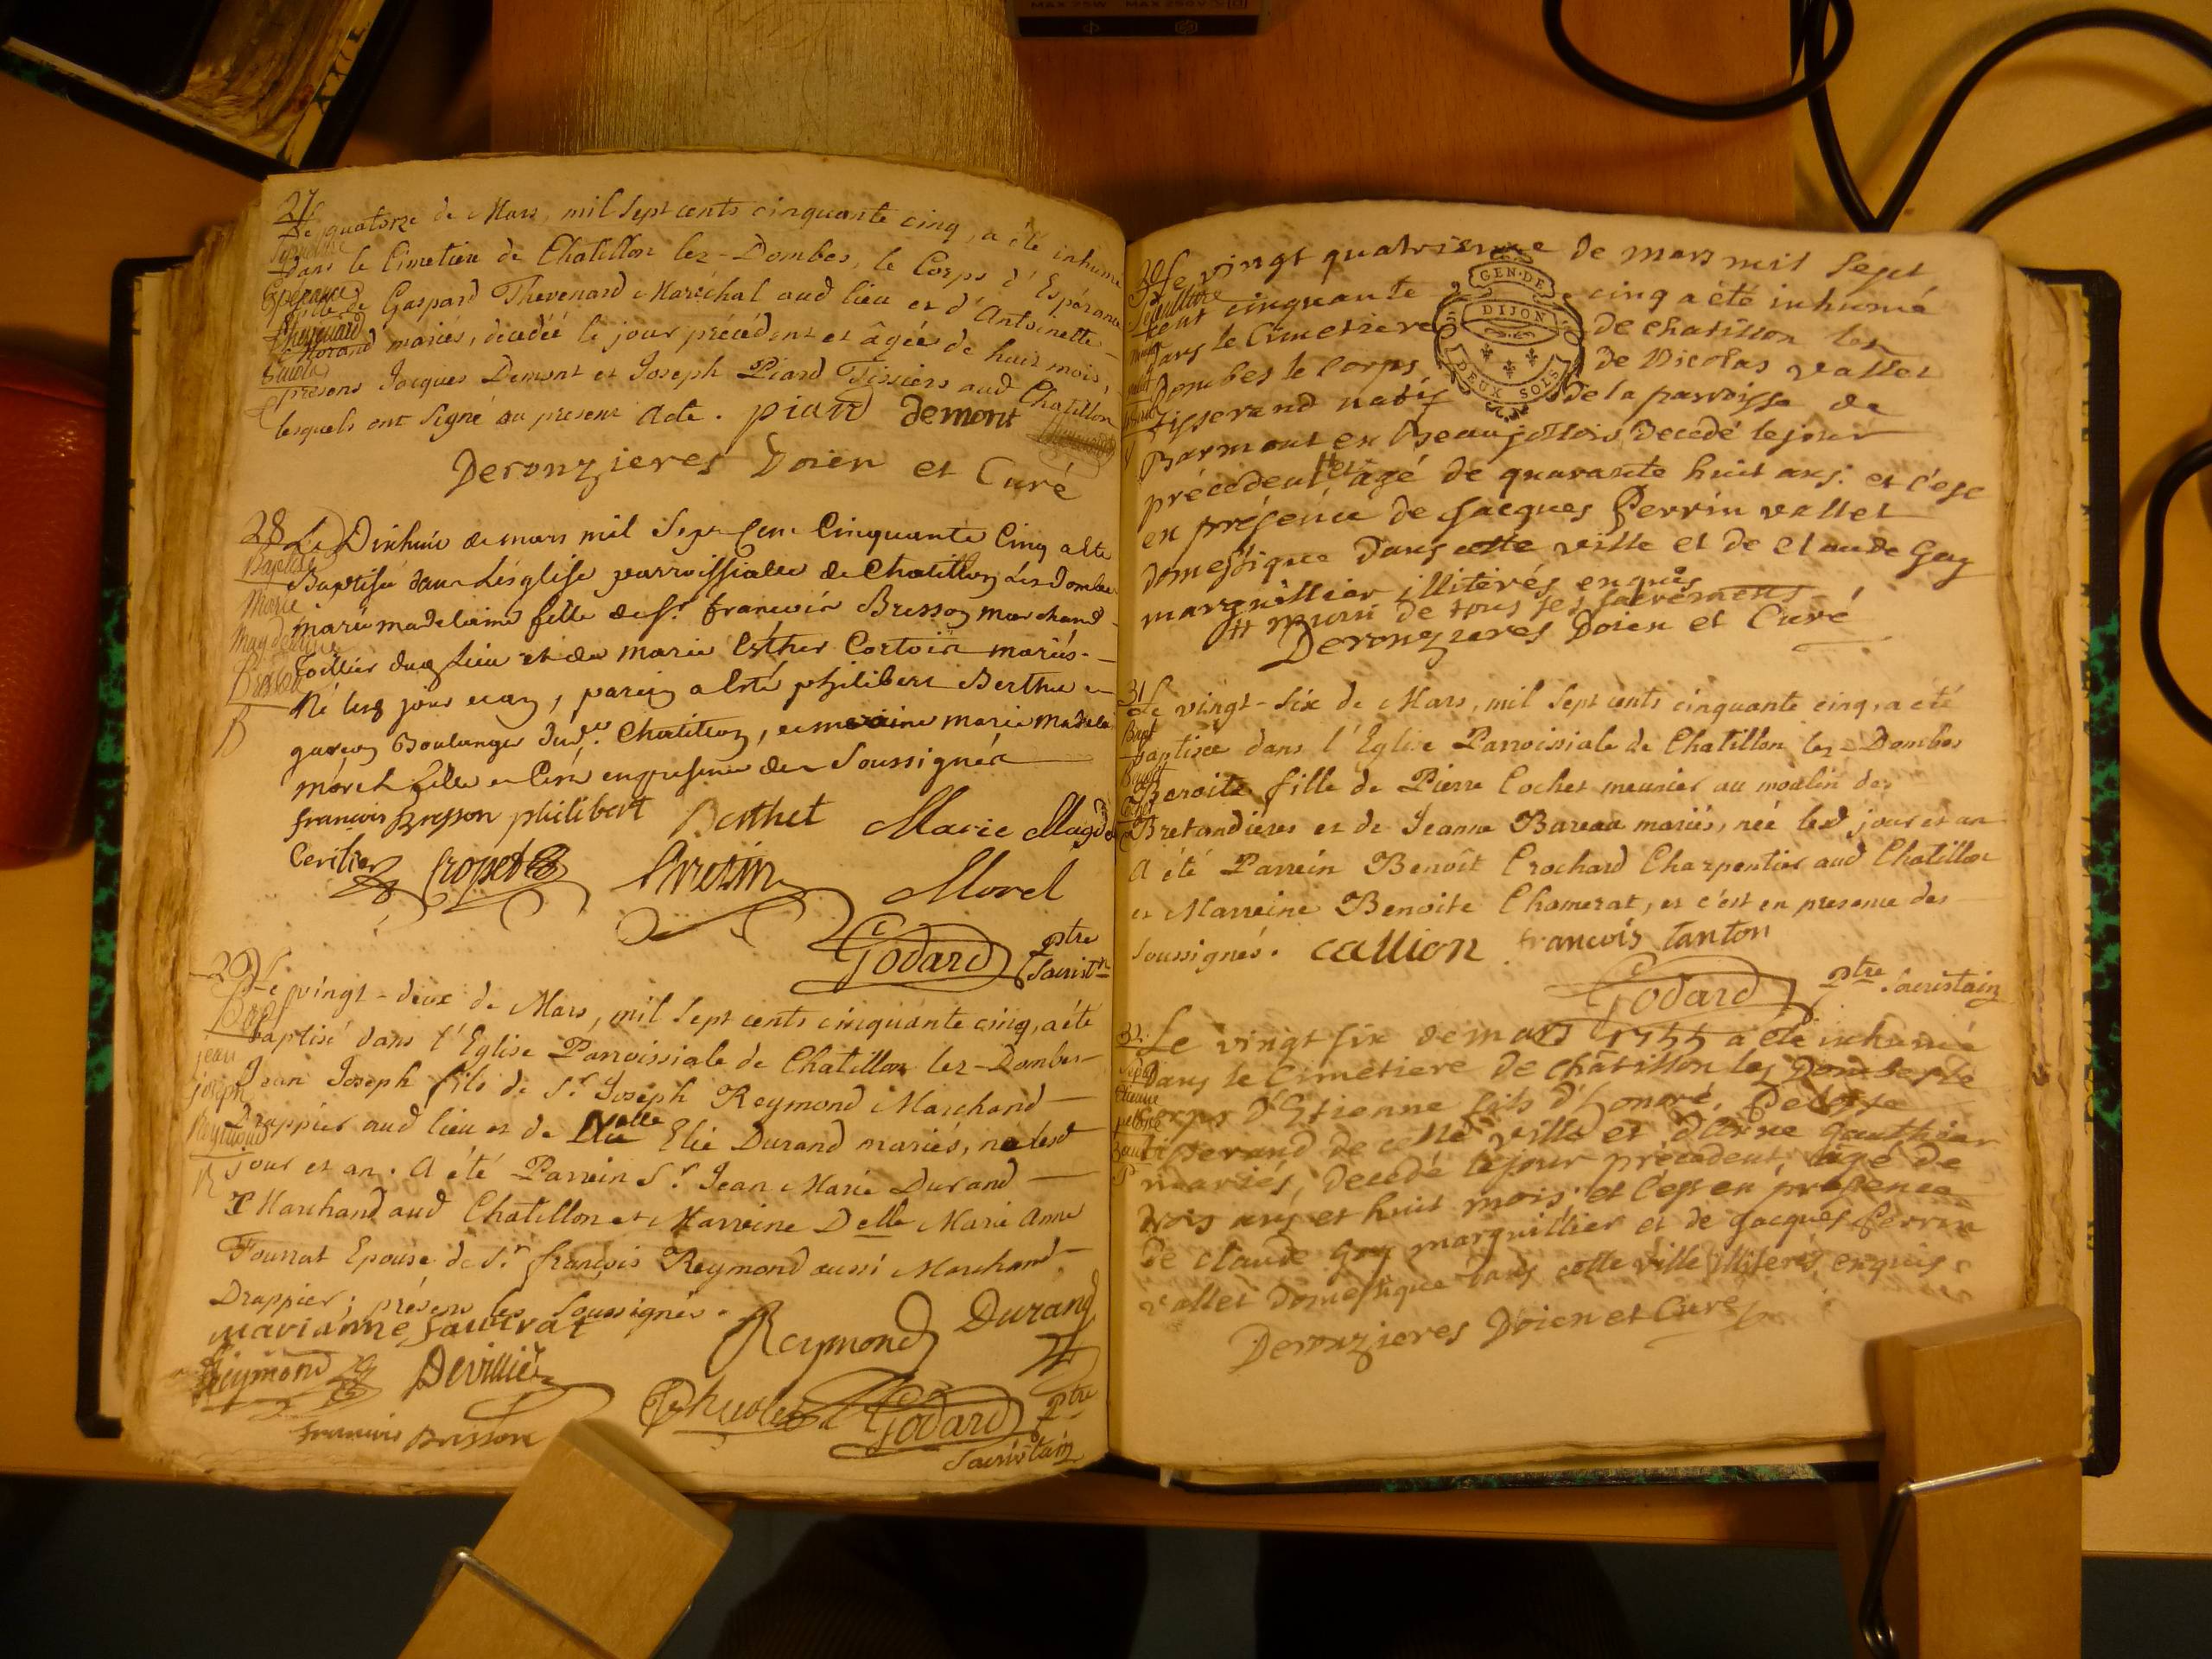 27
Le quatorze de Mars, mil sept cents cinquante cinq, a été inhumé
dans le Cimetiere de Chatillon lez-Dombes, le Corps d'Espérance
fille de Gaspard Thevenard Maréchal aud lieu et d'Antoinette
Morand mariés, decédéé le jour précédent et âgée de huit mois,
présens Jacques Demont et Joseph Piard Tissiers aud Chatillon
lesquels ont signé au present Acte. piard demont
Deronzieres Doien et Curé
28 Le Dixhuit de mars mil Sept Cent Cinquante Cinq a été
Baptisé dans L'eglise parroissialle de Chatillon Les Dombes
Baptise
Marie
Magdelaine
Bresson
B
marie madelaine fille de Sr. francois Bresson marchand
dud Lieu et de marie Esther Cortoin mariés
Né lesd jour et an, parein a été philibert Berthet
garcon Boulanger dud. Chatillon, et maraine marie madela
morel fille et c'est en presence des Soussignés
françois Bresson philibert Berthet Marie Magd
Morel
Godard Ptre
Sacristn
29 Le vingt-deux de Mars, mil sept cents cinquante cinq, a été
Bapt
jean
joseph
Reymond
R
baptisé dans l'Eglise Parroissiale de Chatillon lez-Dombes
Jean Joseph fils de Sr. Joseph Reymond Marchand
Drappier aud lieu et de Delle Elie Durand mariés, né lesd
jour et an. A été Parrein Sr. Jean Marie Durand
Marchand aud Chatillon et Marreine Delle Marie Anne
Fourrat Epouse de Sr. françois Reymond aussi Marchand
Drappier; présens les soussignés.
Reymond Durand
Reymond Devillie
Godard Ptre
francois Bresson
Sacristain
30 Le vingt quatrieme de mars mil sept
Sepulture
cent cinquante cinq a été inhumé
dans le Cimetiere de chatillon les
Dombes le corps de Nicolas vallet
tisserand natif de la parroisse de
GEN·DE
DIJON
DEUX SOLS
Barmont en beaujollois, decedé le jour
précédent # et agé de quarante huit ans. et c'est
en présence de Jacques Perrin vallet
domestique dans cette ville et de claude Guy
marguillier illiterés enquis
# muni de tous ses sacremens
Deronzieres Doien et Curé
31
Le vingt-six de Mars, mil sept cents cinquante cinq, a été
Bapt
baptisée dans l'Eglise Parroissiale de Chatillon lez-Dombes
Benoite fille de Pierre Cochet meunier au moulin des
Bretandieres et de Jeanne Bareau mariés, née lesd jour et an
A été Parrein Benoît Crochard Charpentier aud Chatillon
et Marreine Benoite Chamerat, et c'est en presence des
soussignés. callion francois tanton
Godard Ptre Sacristain
32.
Le vingt six de mars 1755 a été inhumé
dans le Cimetiere de chatillon les Dombes le
corps d'Etienne fils d'honoré
tisserand de cette ville et d'Anne Gauthier
mariés, decedé le jour précédent, agé de
trois ans et huit mois et c'est en présence
de claude Guy marguillier et de Jacques Perrin
vallet domestique dans cette ville illiterés, enquis
Deronzieres Doien et Curé